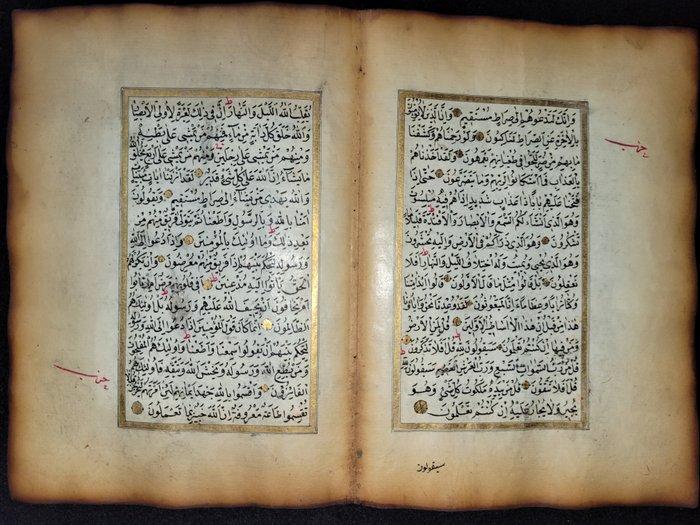 وَاِنَّكَ لَتَدْعُوهُمْ اِلٰى صِرَاطٍ مُسْتَقِيمٍ وَاِنَّ الَّذِينَ لَا يُؤْمِنُونَ
بِالْاٰخِرَةِ عَنِ الصِّرَاطِ لَنَاكِبُونَ وَلَوْ رَحِمْنَاهُمْ وَكَشَفْنَا
مَا بِهِمْ مِنْ ضُرٍّ لَلَجُّوا فِى طُغْيَانِهِمْ يَعْمَهُونَ وَلَقَدْ اَخَذْنَاهُمْ
بِالْعَذَابِ فَمَا اسْتَكَانُوا لِرَبِّهِمْ وَمَا يَتَضَرَّعُونَ حَتّٰى اِذَا
فَتَحْنَا عَلَيْهِمْ بَابًا ذَا عَذَابٍ شَدِيدٍ اِذَا هُمْ فِيهِ مُبْلِسُونَ
وَهُوَ الَّذِى اَنْشَاَ لَكُمُ السَّمْعَ وَالْاَبْصَارَ وَالْاَفْئِدَةَ قَلِيلًا مَا
تَشْكُرُونَ وَهُوَ الَّذِى ذَرَاَكُمْ فِى الْاَرْضِ وَاِلَيْهِ تُحْشَرُونَ
وَهُوَ الَّذِى يُحْيِى وَيُمِيتُ وَلَهُ اخْتِلَافُ الَّيْلِ وَالنَّهَارِ اَفَلَا
تَعْقِلُونَ بَلْ قَالُوا مِثْلَ مَا قَالَ الْاَوَّلُونَ قَالُوا ءَاِذَا مِتْنَا
وَكُنَّا تُرَابًا وَعِظَامًا ءَاِنَّا لَمَبْعُوثُونَ لَقَدْ وُعِدْنَا نَحْنُ وَاٰبَاؤُنَا
هٰذَا مِنْ قَبْلُ اِنْ هٰذَا اِلَّا اَسَاطِيرُ الْاَوَّلِينَ قُلْ لِمَنِ الْاَرْضُ
وَمَنْ فِيهَا اِنْ كُنْتُمْ تَعْلَمُونَ سَيَقُولُونَ لِلّٰهِ قُلْ اَفَلَا تَذَكَّرُونَ
قُلْ مَنْ رَبُّ السَّمٰوَاتِ السَّبْعِ وَرَبُّ الْعَرْشِ الْعَظِيمِ سَيَقُولُونَ لِلّٰهِ
قُلْ اَفَلَا تَتَّقُونَ قُلْ مَنْ بِيَدِهِ مَلَكُوتُ كُلِّ شَىْءٍ وَهُوَ
يُجِيرُ وَلَا يُجَارُ عَلَيْهِ اِنْ كُنْتُمْ تَعْلَمُونَ
حزب
سيقولون
يُقَلِّبُ اللّٰهُ الَّيْلَ وَالنَّهَارَ اِنَّ فِى ذٰلِكَ لَعِبْرَةً لِاُولِى الْاَبْصَارِ
وَاللّٰهُ خَلَقَ كُلَّ دَابَّةٍ مِنْ مَاءٍ فَمِنْهُمْ مَنْ يَمْشِى عَلٰى بَطْنِهِ
وَمِنْهُمْ مَنْ يَمْشِى عَلٰى رِجْلَيْنِ وَمِنْهُمْ مَنْ يَمْشِى عَلٰى اَرْبَعٍ يَخْلُقُ اللّٰهُ
مَا يَشَاءُ اِنَّ اللّٰهَ عَلٰى كُلِّ شَىْءٍ قَدِيرٌ لَقَدْ اَنْزَلْنَا اٰيَاتٍ مُبَيِّنَاتٍ
وَاللّٰهُ يَهْدِى مَنْ يَشَاءُ اِلٰى صِرَاطٍ مُسْتَقِيمٍ وَيَقُولُونَ
اٰمَنَّا بِاللّٰهِ وَبِالرَّسُولِ وَاَطَعْنَا ثُمَّ يَتَوَلّٰى فَرِيقٌ مِنْهُمْ مِنْ
بَعْدِ ذٰلِكَ وَمَا اُولٰئِكَ بِالْمُؤْمِنِينَ وَاِذَا دُعُوا اِلَى اللّٰهِ
وَرَسُولِهِ لِيَحْكُمَ بَيْنَهُمْ اِذَا فَرِيقٌ مِنْهُمْ مُعْرِضُونَ وَاِنْ يَكُنْ لَهُمُ
الْحَقُّ يَاْتُوا اِلَيْهِ مُذْعِنِينَ اَفِى قُلُوبِهِمْ مَرَضٌ اَمِ ارْتَابُوا
اَمْ يَخَافُونَ اَنْ يَحِيفَ اللّٰهُ عَلَيْهِمْ وَرَسُولُهُ بَلْ اُولٰئِكَ هُمُ
الظَّالِمُونَ اِنَّمَا كَانَ قَوْلَ الْمُؤْمِنِينَ اِذَا دُعُوا اِلَى اللّٰهِ وَرَسُولِهِ
لِيَحْكُمَ بَيْنَهُمْ اَنْ يَقُولُوا سَمِعْنَا وَاَطَعْنَا وَاُولٰئِكَ هُمُ الْمُفْلِحُونَ
وَمَنْ يُطِعِ اللّٰهَ وَرَسُولَهُ وَيَخْشَ اللّٰهَ وَيَتَّقْهِ فَاُولٰئِكَ هُمُ
الْفَائِزُونَ وَاَقْسَمُوا بِاللّٰهِ جَهْدَ اَيْمَانِهِمْ لَئِنْ اَمَرْتَهُمْ لَيَخْرُجُنَّ قُلْ لَا
تُقْسِمُوا طَاعَةٌ مَعْرُوفَةٌ اِنَّ اللّٰهَ خَبِيرٌ بِمَا تَعْمَلُونَ
حزب